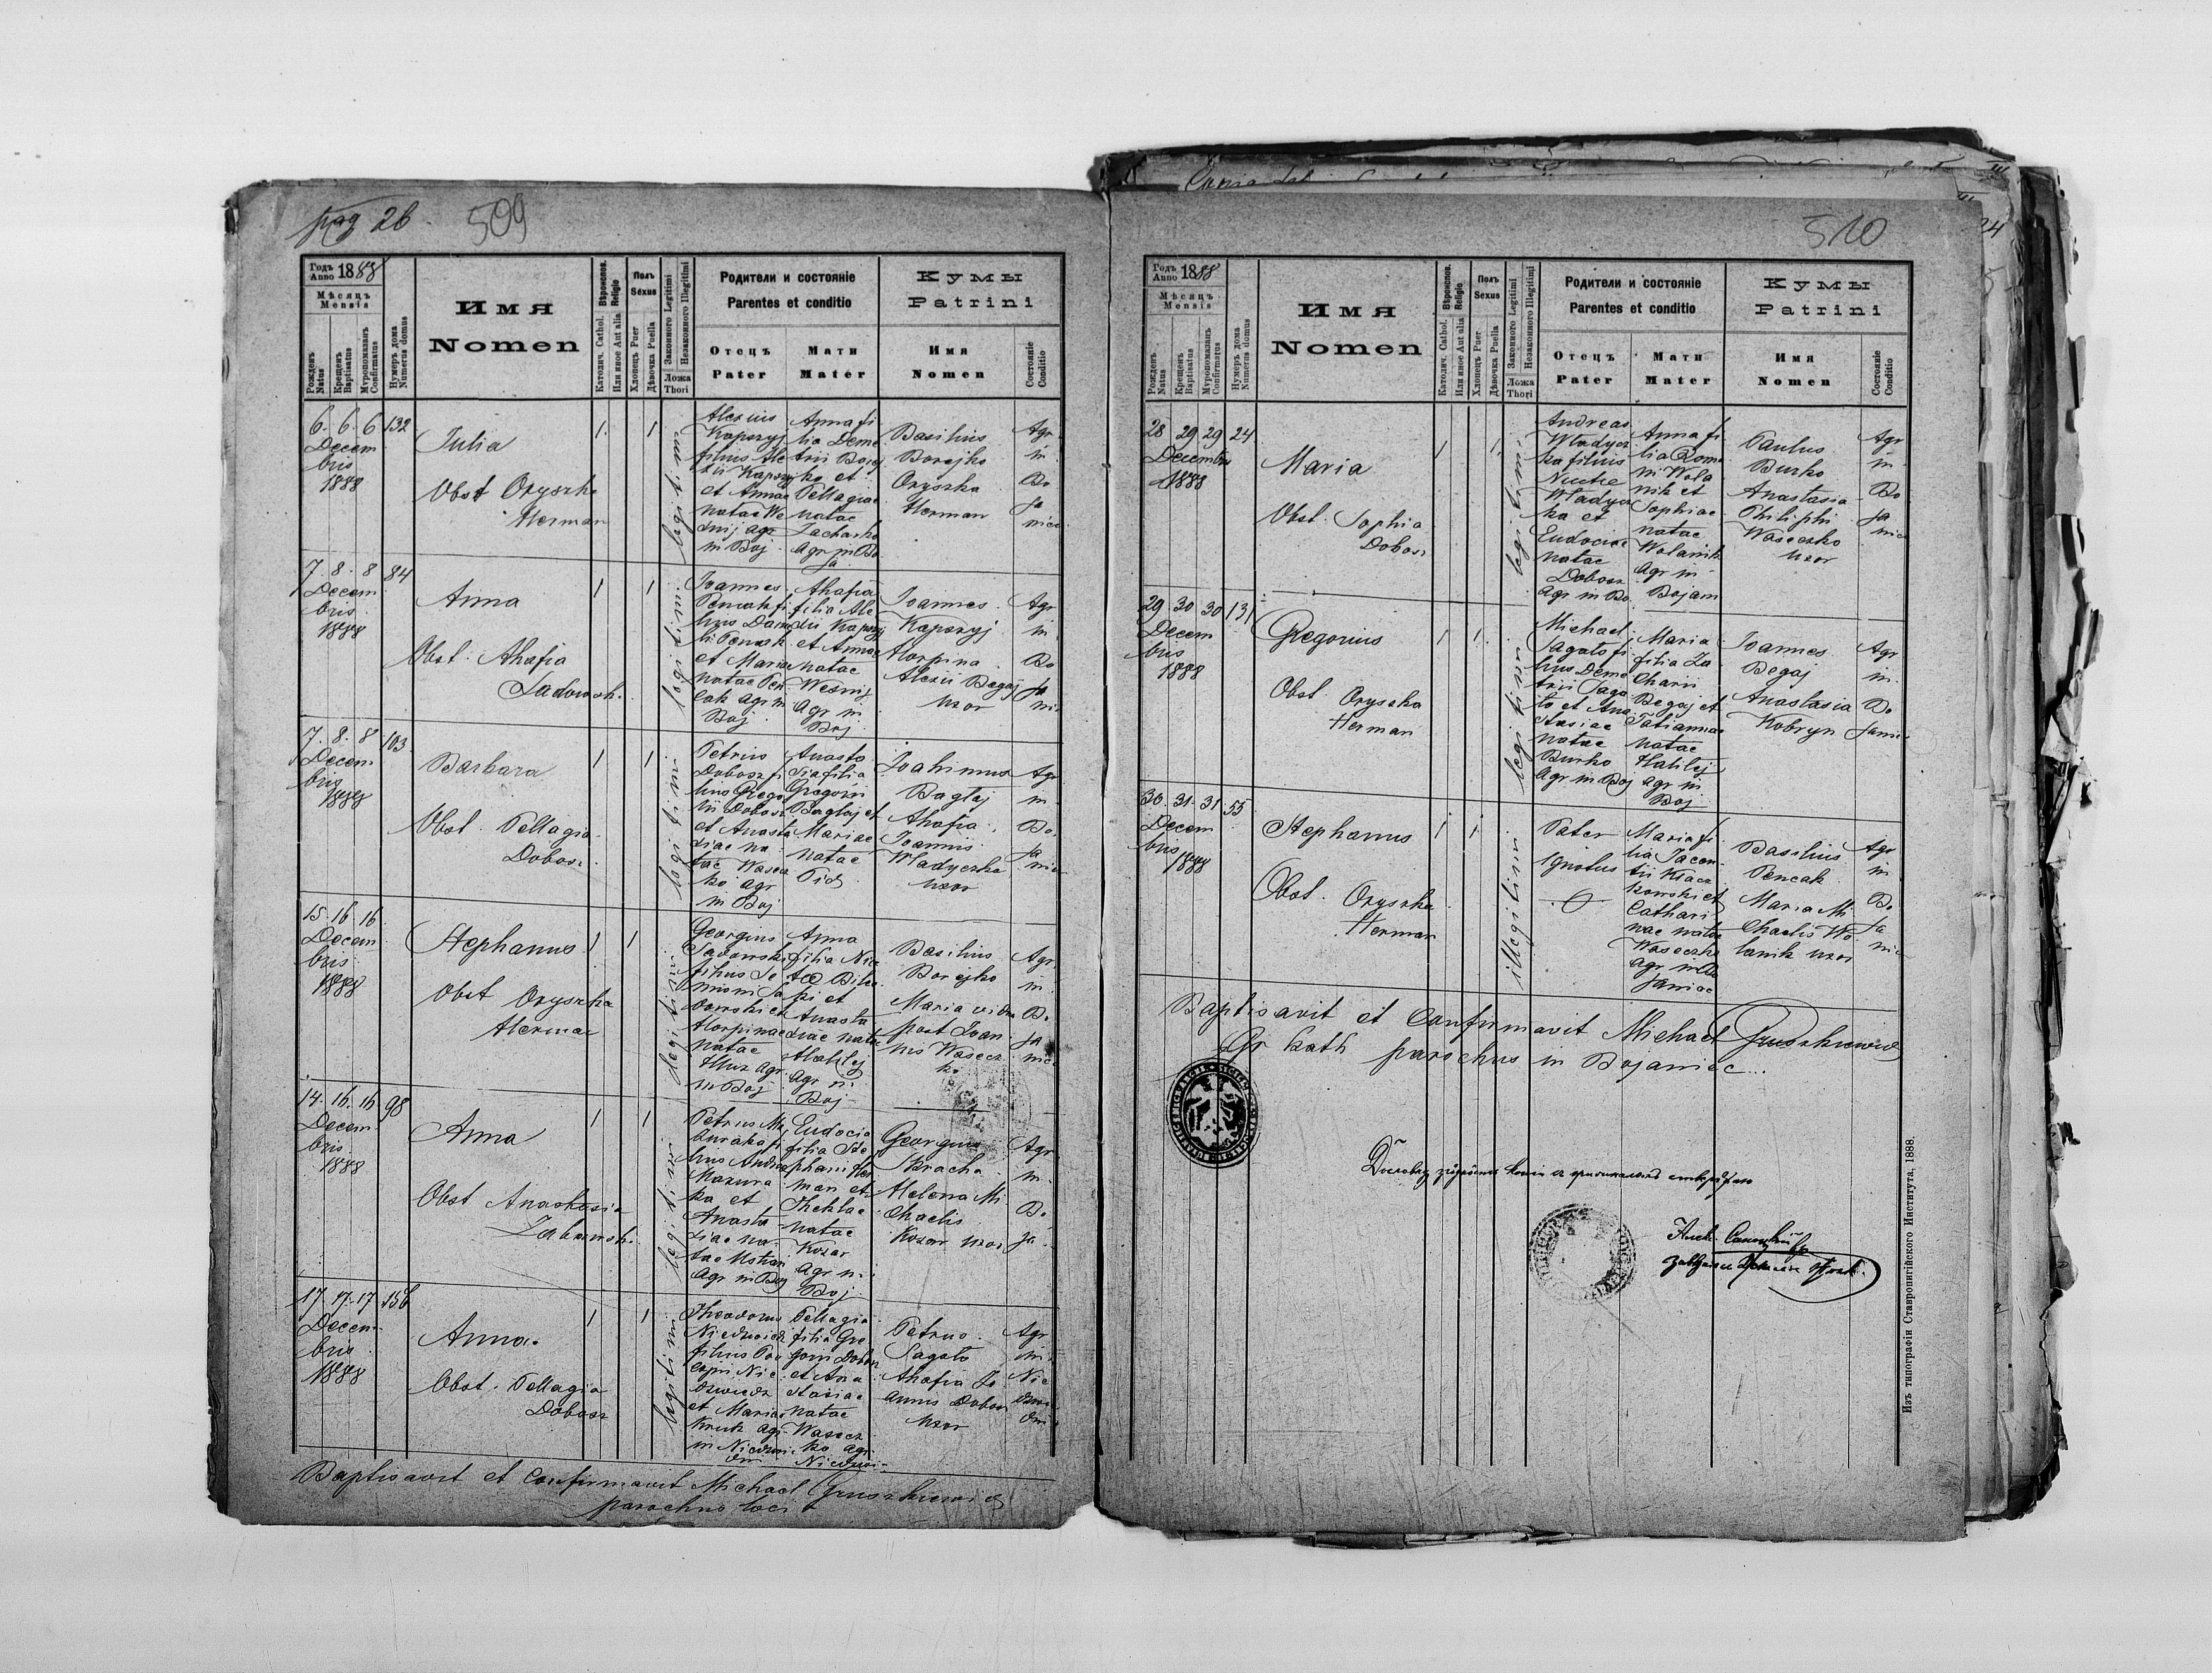 pag 26. 509
Годъ Anno 1888
Мѣсяцъ
Mensis
Рожденъ Natus
Крещенъ Baptisatus
Муропомазанъ Confirmatus
Нумеръ дома Numerus domus
Имя
Nomen
Вѣроиспов. Religio
Католич. Cathol.
Или иное Aut alia
Полъ
Sexus
Хлопецъ Puer
Дѣвочка Puella
Законного Legitimi
Незаконного Illegitimi
Ложа
Thori
Родители и состояніе
Parentes et conditio
Отецъ
Pater
Мати
Mater
Кумы
Patrini
Имя
Nomen
Состояніе
Conditio
6. 6. 6 132
Decem
bris
1888
Julia
Obst Oryszka
Herman
1. 1
legitimi
Alexius
Kapszyj
filius Ale
xii Kapszyj
et Annae
natae We
snij agr
in Boj
Anna fi
lia Deme
trii Borej
ko et
Pellagiae
natae
Zacharko
agr in Bo
ja
Basilius
Borejko
Oryszka
Herman
Agr
in
Bo
ja
niec
7. 8. 8 84
Decem
bris
1888
Anna
Obst. Ahafia
Sadowsk.
1 1
legitimi
Joannes
Pencak fi
lius Dani
li Pencak
et Mariae
natae Pen
cak agr in
Boj
Ahafia
filia Ale
xii Kapszyj
et Annae
natae
Wesnij
agr in
Boj
Joannes
Kapszyj
Horpina
Alexii Begaj
uxor
Agr
in
Bo
ja
nie
7. 8. 8 103
Decem
bris
1888
Barbara
Obst. Pellagia
Dobosz.
1 1
legitimi
Petrus
Dobosz fi
lius Grego
rii Dobosz
et Anasta
siae na
tae Wasecz
ko agr
in Boj
Anasta
sia filia
Gregorii
Baglaj et
Mariae
natae
Pid
Joahimus
Baglaj
Ahafia
Joannis
Wladyczka
uxor
Agr
in
Bo
ja
nie
15. 16. 16
Decem
bris
1888
Stephanus
Obst Oryszka
Herman
1 1
legitimi
Georgius
Sadowski
filius Se
mioni Sa
dowski et
Horpinae
natae
agr
in Boj
Anna
filia Nice
tae
ki et
Anasta
siae natae
Halilej
agr in
Boj
Basilius
Borejko
Maria vidua
post Joan
nis Wasecz
ko
Agr.
in
Bo
ja
nie
14. 16. 16 98
Decem
bris
1888
Anna
Obst Anastasia
1 1
legitimi
Petrus Ma
zuraka fi
lius Andreae
Mazura
ka et
Anasta
siae na
tae
agr in Boj
Eudocia
filia Ste
phani Her
man et
Theklae
natae
Kozar
agr in
Boj
Georgius
Kracha
Helena Mi
chaelis
Kozar uxor
Agr
in
Bo
ja
17. 17. 17 156
Decem
bris
1888
Anna.
Obst. Pellagia
Dobosz
1 1
legitimi
Theodorus
Niedzwiedz
filius Por
cyrii Nie
dzwiedz
et Mariae
Kruk agr
in Niedzwi
dni
Pellagia
filia Gre
gorii Dobosz
et Ana
stasiae
natae
Wasecz
ko agr
Niedzwi
Petrus
Sagato
Ahafia Jo
annis Dobosz
uxor
Agr
in
Nie
dzwi
dni
Baptisavit et Confirmavit Michael Gruszkiewicz
parochus loci
510
Годъ Anno 1888
Мѣсяцъ
Mensis
Рожденъ Natus
Крещенъ Baptisatus
Муропомазанъ Confirmatus
Нумеръ дома Numerus domus
Имя
Nomen
Вѣроиспов. Religio
Католич. Cathol.
Или иное Aut alia
Полъ
Sexus
Хлопецъ Puer
Дѣвочка Puella
Законного Legitimi
Незаконного Illegitimi
Ложа
Thori
Родители и состояніе
Parentes et conditio
Отецъ
Pater
Мати
Mater
Кумы
Patrini
Имя
Nomen
Состояніе
Conditio
28 29 29 24
Decembris
1888
Maria
Obst. Sophia
Dobosz
1 1
legitimi
Andreas
Wladycz
ka filius
Nicetae
Wladycz
ka et
Eudociae
natae
Dobosz
agr in Bo
Anna fi
lia Roma
ni Wola
nik et
Sophiae
natae
Wolanik
agr in
Bojan
Paulus
Burko
Anastasia
Philiphi
Waseczko
uxor
Agr
in
Bo
ja
nie
29. 30 30 131
Decem
bris
1888
Gregorius
Obst. Oryszka
Herman
1 1
legitimi
Michael
Sagato fi
lius Deme
trii Saga
to et Ana
stasiae
natae
Burko
agr in Boj
Maria
filia Za
charii
Begaj et
Tatiannae
natae
Halilej
agr in
Boj
Joannes
Begaj
Anastasia
Kobryn
Agr
in
Bo
janie
30. 31. 31 55
Decem
bris
1888
Stephanus
Obst. Oryszka
Herman
1 1
illegitimi
Pater
Ignotus
Maria fi
lia Jacen
tii Klacz
kowski et
Cathari
nae natae
Waseczko
agr in Bo
janiec
Basilius
Pencak
Maria Mi
chaelis Wo
lanik uxor
Agr
in
Bo
ja
nie
Baptisavit et Confirmavit Michael Gruszkiewicz
Gr kath parochus in Bojaniec.
Изъ типографіи Ставропигійского Института, 1888.